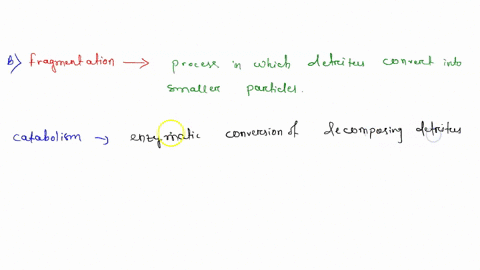 B) Fragmentation → process in which detritus convert into
smaller particles.
catabolism → enzymatic conversion of decomposing detritus